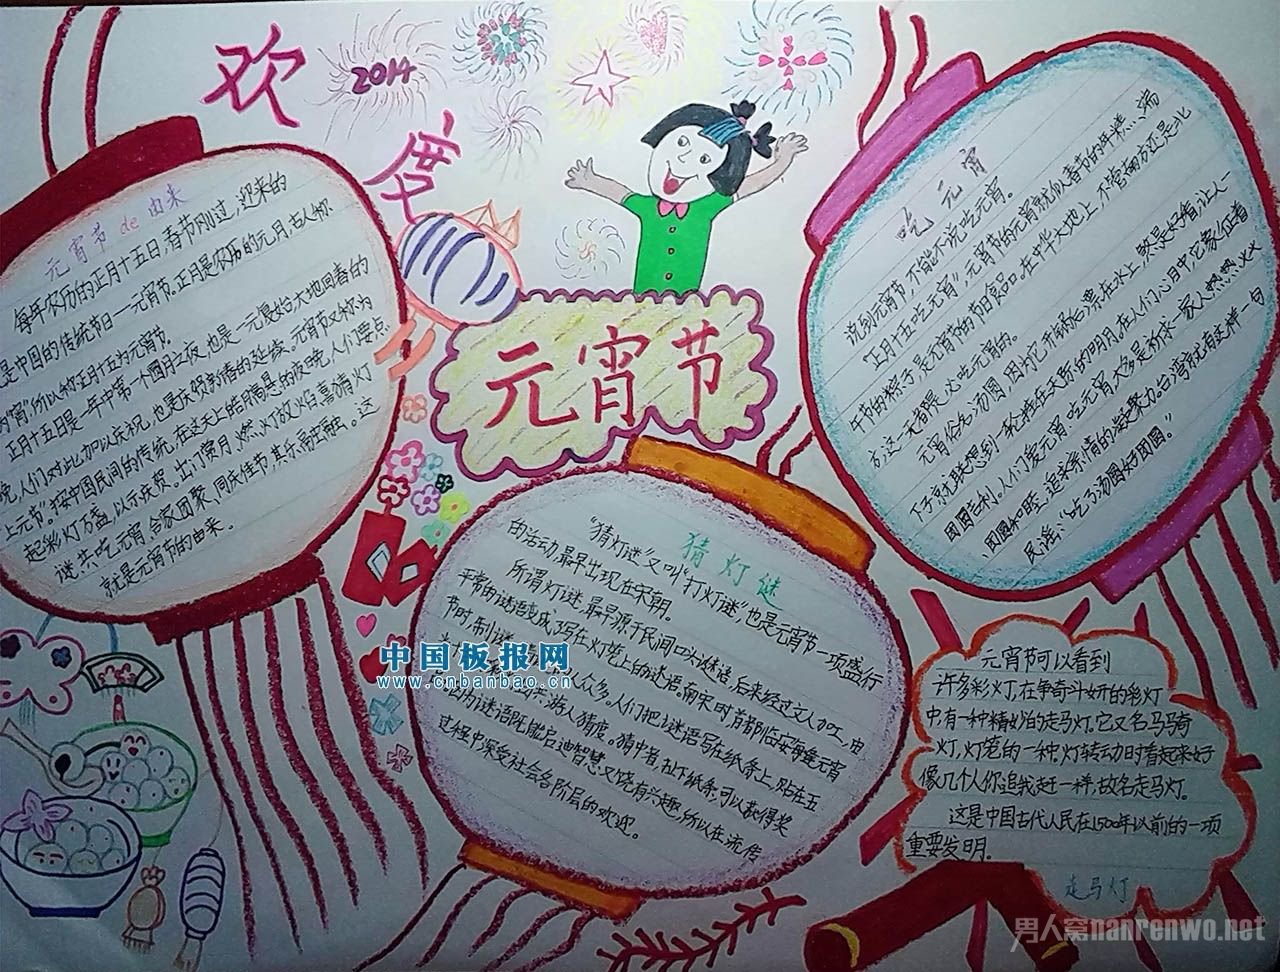 欢
度
2014
元宵节
元宵节de由来
每年农历的正月十五日,春节刚过,迎来的
是中国的传统节日一元宵节.正月是农历的元月,古人称
为"宵",所以称正月十五为元宵节.
正月十五日是一年中第一个月圆之夜,也是一元复始,大地回春的
晚,人们对此加以庆祝,也是庆贺新春的延续.元宵节又称为
上元节".按中国民间的传统,在这天上皓月高悬的夜晚,人们要点
起彩灯万盏,以示庆贺.出门赏月、燃灯放焰、喜猜灯
谜、共吃元宵、合家团聚、同庆佳节,其乐融融。这
就是元宵节的由来.
吃元宵
说到元宵节,不能不说吃元宵。
"正月十五吃元宵",元宵节的元宵就似春节的年糕、端
午节的粽子,是元宵节的节日食品.在中华大地上,不管南方还是北
方,这一天都是必吃元宵的.
元宵俗名:汤圆,因为它开锅后漂在水上,煞是好看,让人一
下子就联想到一轮挂在天际的明月.在人们心目中,它象征着
团团吉利。人们爱元宵,吃元宵,大多是祈求一家人热热火火
、团圆和旺、追求亲情的凝聚力.台湾就有这样一句
民谣:"吃了汤圆好团圆。"
猜灯谜
"猜灯谜"又叫"打灯谜",也是元宵节一项盛行
的活动,最早出现在宋朝.
所谓灯谜,最早源于民间口头谜语,后来经过文人加工,由
平常的谜语变成了写在灯笼上的谜语.南宋时,首都临安每逢元宵
节时,制谜 人众多。人们把谜语写在纸条上,贴在五
游人猜度。猜中者,扯下纸条,可以获得奖
因为谜语既能启迪智慧又饶有兴趣,所以在流传
过程中深受社会各阶层的欢迎。
元宵节可以看到
许多彩灯,在争奇斗妍的彩灯
中,有一种精妙的走马灯.它又名马骑
灯,灯笼的一种.灯转动时看起来好
像几个人你追我赶一样,故名走马灯。
这是中国古代人民在1500年以前的一项
重要发明.
走马灯
中国板报网
www.cnbanbao.cn
男人窝nanrenwo.net